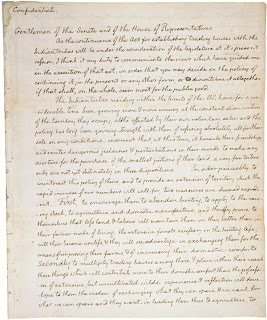 Confidential.
Gentlemen of the Senate and of the House of Representatives
As the continuance of the Act for establishing trading houses with the
Indian tribes will be under the consideration of the legislature at it's present
session, I think it my duty to communicate the views which have guided me
in the execution of that act, in order that you may decide on the policy of
continuing it, in the present or any other form, or to discontinue it altogether
if that shall, on the whole, seem most for the public good.
The Indian tribes residing within the limits of the US. have for a con-
siderable time been growing more & more uneasy at the constant diminution
of the territory they occupy, altho' effected by their own voluntary sales: and the
policy has long been gaining strength with them of refusing absolutely all further
sale on any conditions, insomuch that at this time, it hazards their friendship,
and excites dangerous jealousies & perturbations in their minds to make any
overture for the purchase of the smallest portions of their land. a very few tribes
only are not yet obstinately in these dispositions. in order peaceably to
counteract this policy of theirs, and to provide an extension of territory which the
rapid increase of our numbers will call for, two measures are deemed expedi-
ent. First, to encourage them to abandon hunting, to apply to the rais-
ing stock, to agriculture and domestic manufacture, and thereby prove to
themselves that less land & labour will maintain them in this, better than in
their former mode of living. the extensive forests necessary in the hunting life,
will then become useless, & they will see advantage in exchanging them for the
means of improving their farms, & of increasing their domestic comforts.
Secondly to multiply trading houses among them, & place within their reach
those things which will contribute more to their domestic comfort than the possession
of extensive, but uncultivated wilds. experience & reflection will deve-
lope to them the wisdom of exchanging what they can spare & we want, for
what we can spare and they want. in leading them thus to agriculture, to